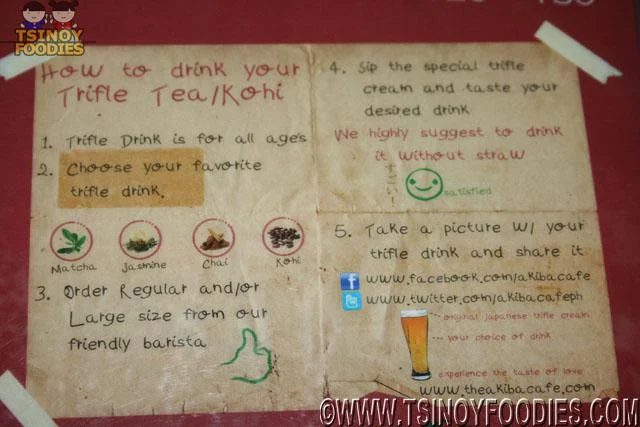 TSINOY
FOODIES
How to drink your
Trifle Tea/Kohi
1. Trifle Drink is for all age's
2. Choose your favorite
trifle drink.
Matcha
Jasmine
Chai
Kohi
3. Order Regular and/or
Large size from our
friendly barista
4. Sip the special trifle
cream and taste your
desired drink
We highly suggest to drink
it without straw
すごい
satisfied
5. Take a picture w/ your
trifle drink and share it
www.facebook.com/akibacafe
www.twitter.com/akibacafeph
original japanese trifle cream
your choice of drink
experience the taste of love
www.theakibacafe.com
©WWW.TSINOYFOODIES.COM